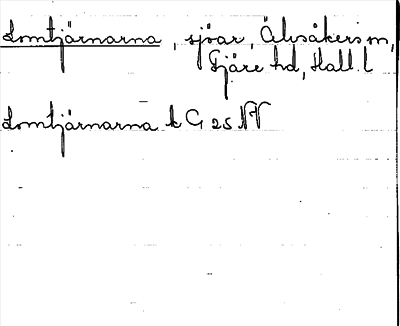 Lomtjärnarna, sjöar, Älvsåkers sn,
Fjäre hd, Hall. l
Lomtjärnarna k G 25 NV